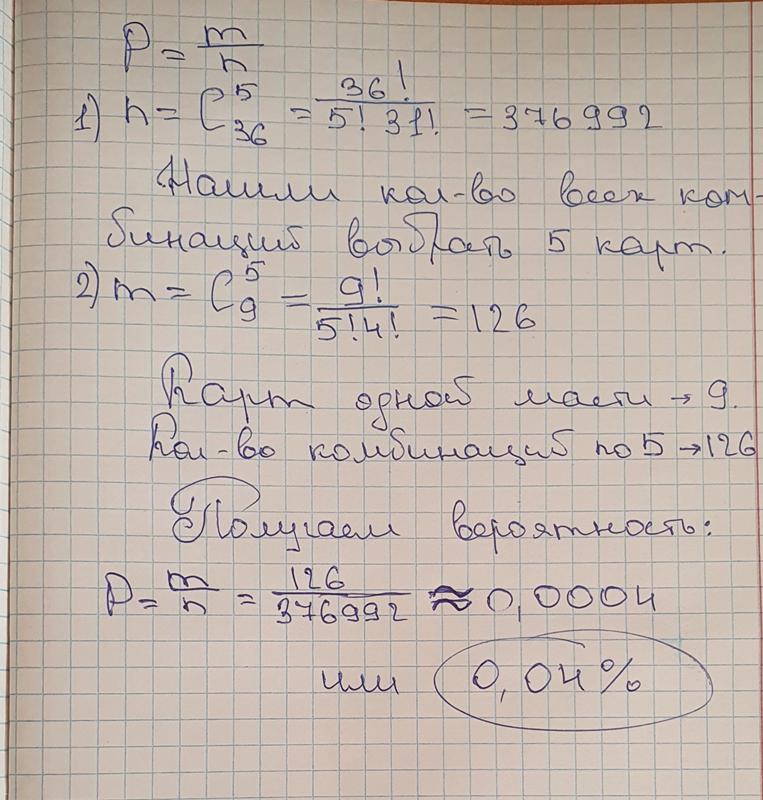 P = m/n
1) n = C₃₆⁵ = 36!/5! 31! = 376992
Нашли кол-во всех ком-
бинаций выбрать 5 карт.
2) m = C₉⁵ = 9!/5!4! = 126
Карт одной масти → 9.
Кол-во комбинаций по 5 → 126
Получаем вероятность:
P = m/n = 126/376992 ≈ 0,0004
или 0,04%